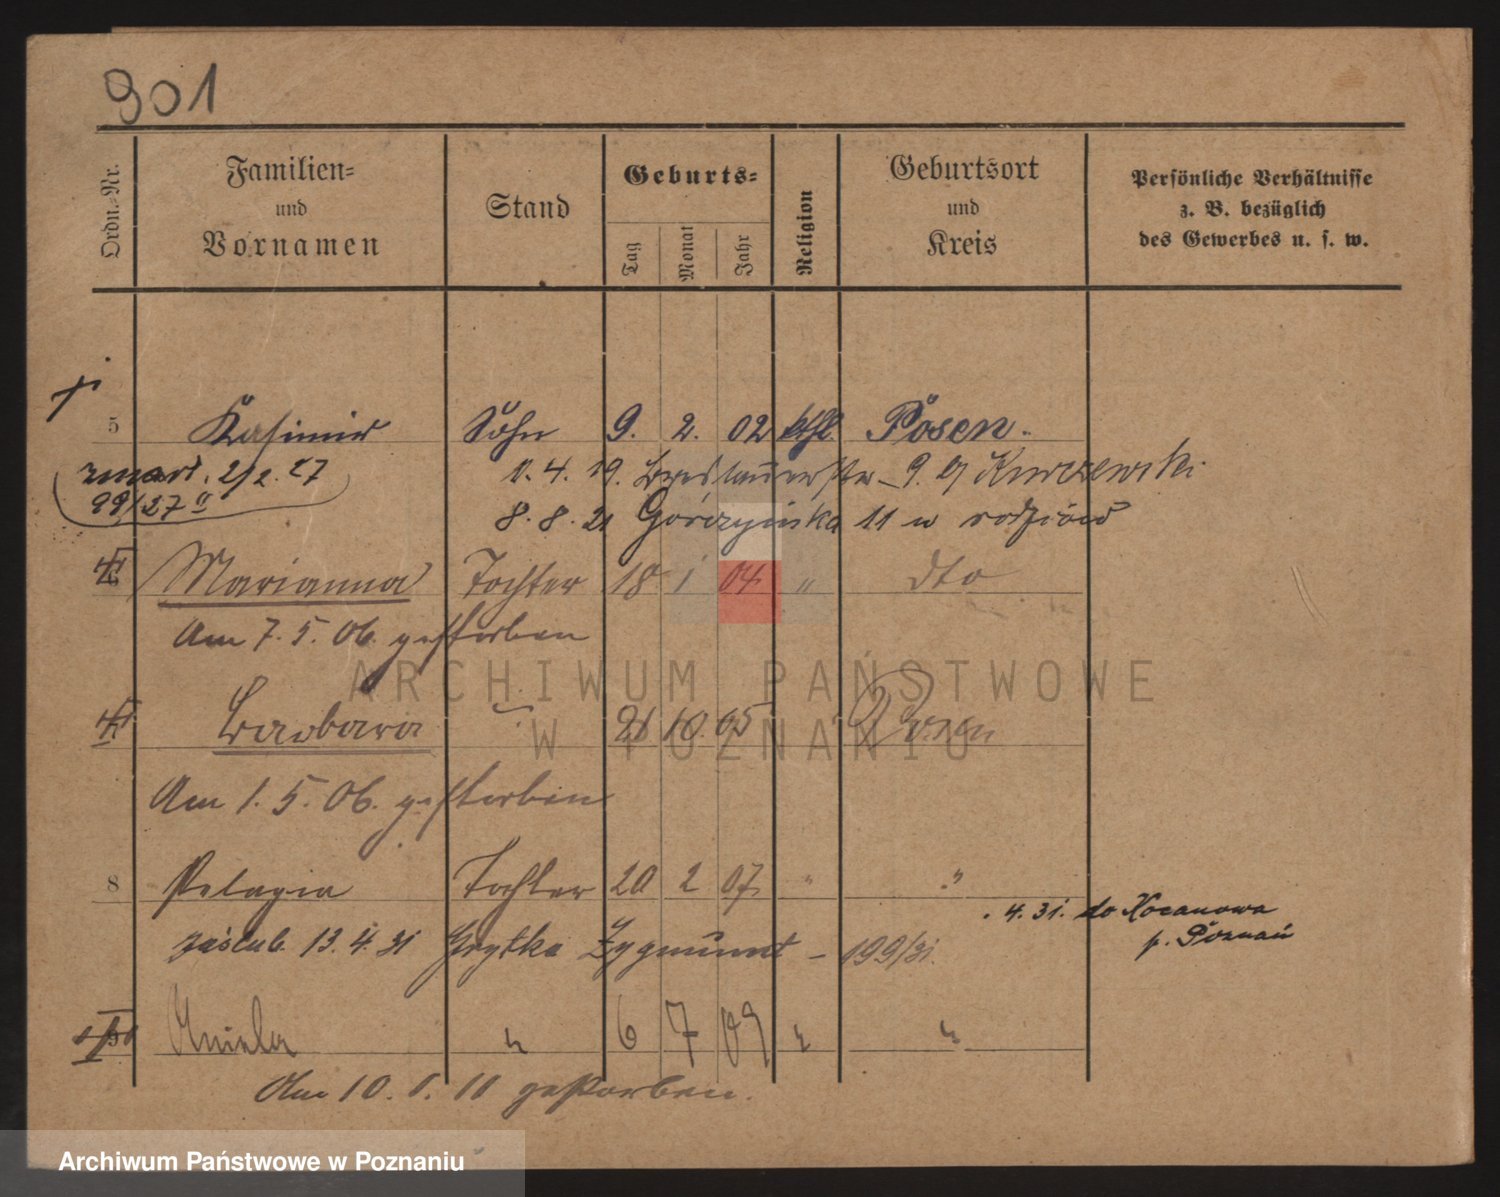 901
Ordn.-Nr.
Familien-
und
Vornamen
Stand
Geburts-
Tag Monat Jahr
Religion
Geburtsort
und
Kreis
Persönliche Verhältnisse
z. B. bezüglich
des Gewerbes u. s. w.
5 Kasimir Sohn 9. 2. 02 kthl. Posen.
zmarł. 2/2. 27
99/27
4. 19. Breslauerstr. 9. Kurczewski
8. 8. 21 Górczyńska 11 u rodziców
Marianna Tochter 18 1 04 " dto
Am 7. 5. 06. gestorben
Barbara 21 10. 05 Posen
Am 1. 5. 06. gestorben
8 Pelagia Tochter 20 2 07 " "
4. 31. do Kocanowa
p. Poznań
zaślub. 13. 4. 31 Grytka Zygmunt - 199/31.
9 Aniela " 6 7 09 " "
Am 10. gestorben.
ARCHIWUM PAŃSTWOWE
W POZNANIU
Archiwum Państwowe w Poznaniu